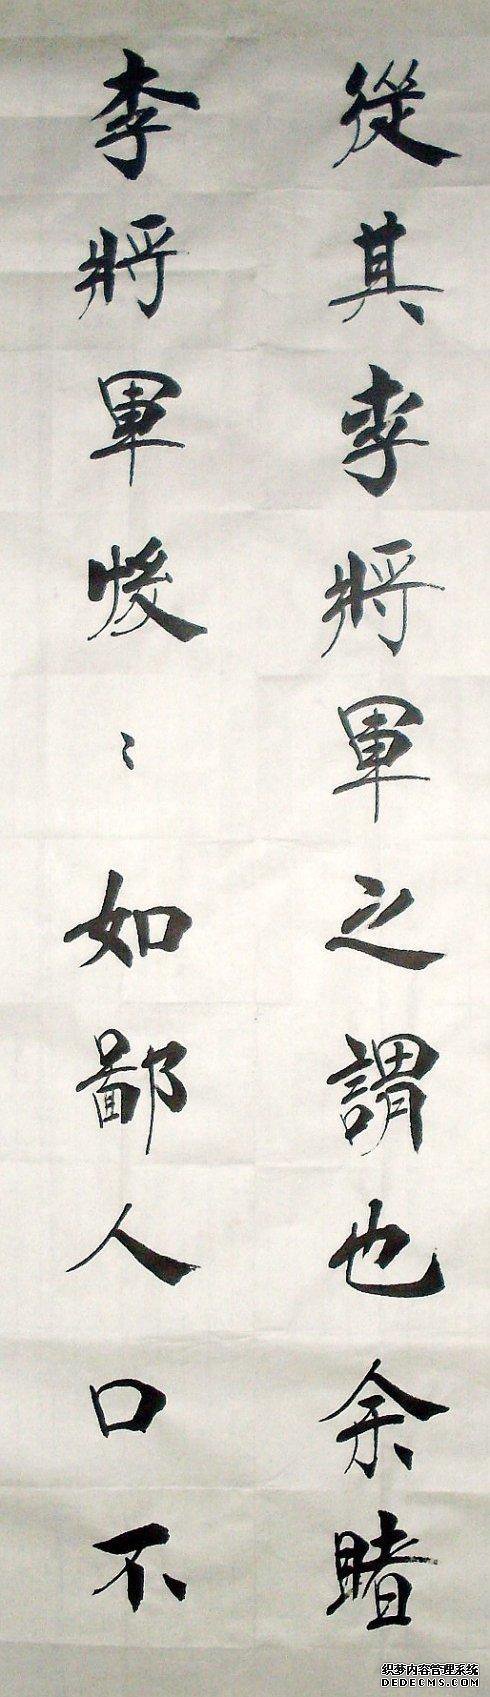 從其李將軍之謂也余睹
李將軍悛〻如鄙人口不
织梦内容管理系统
DEDECMS.COM